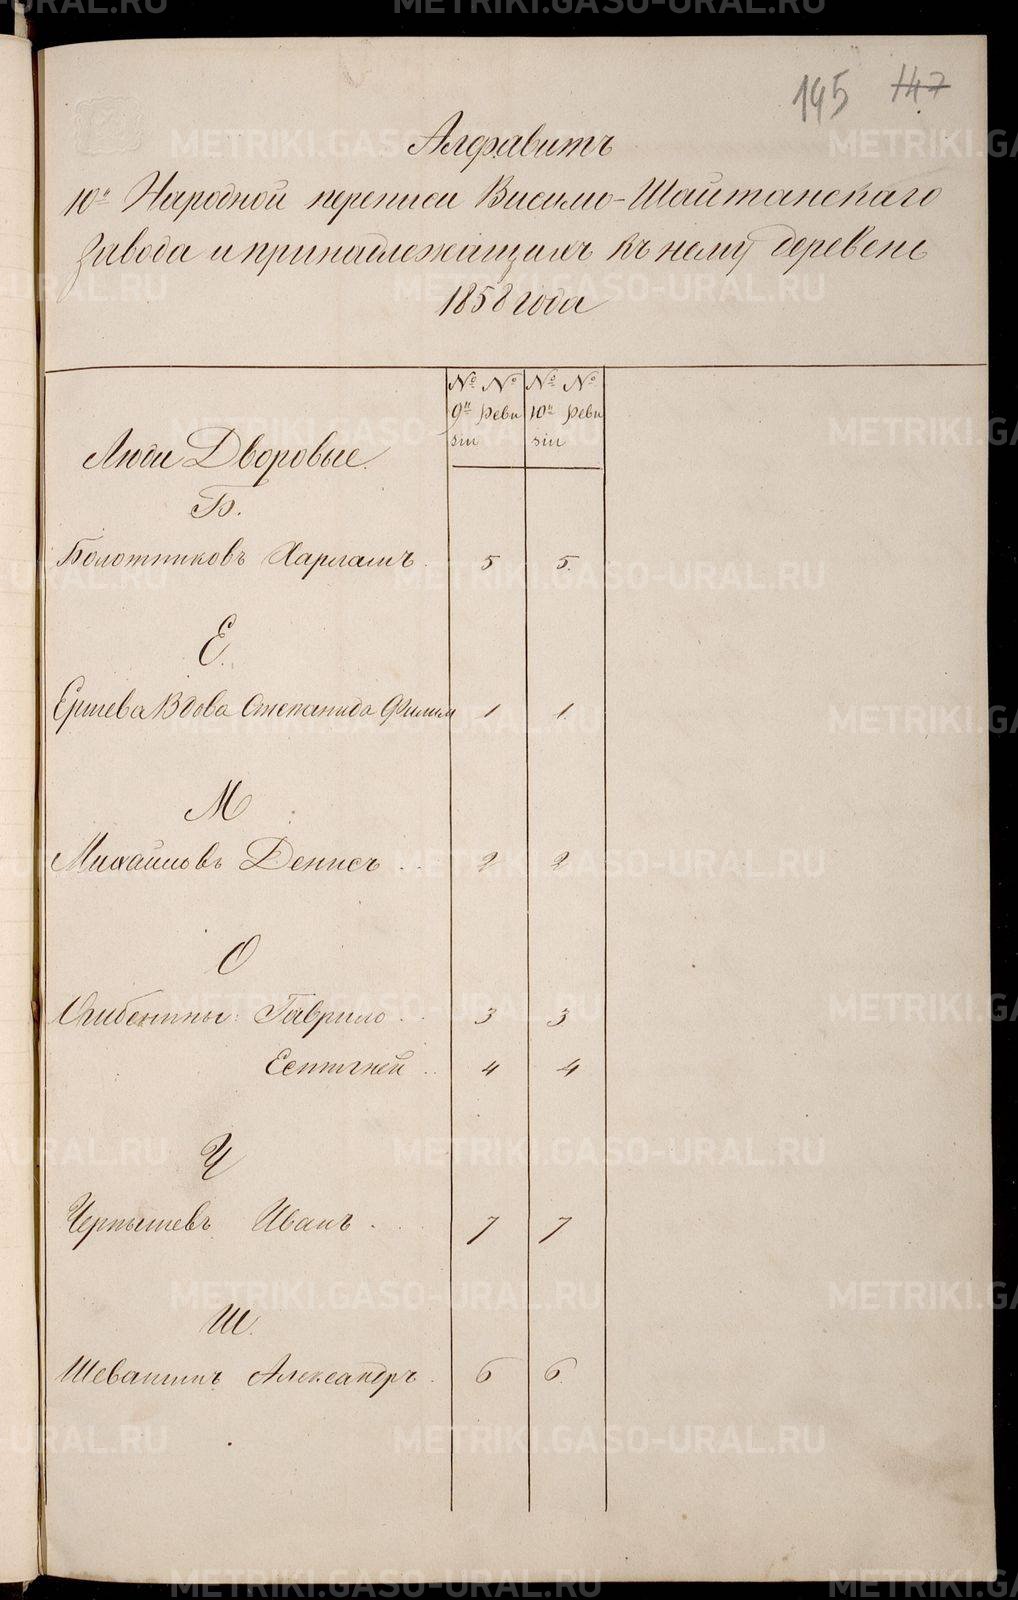 195 147
Алфавитъ
10й Народной переписи Висимо-Шайтанскаго
завода и принадлежащихъ къ нему деревень
1858 года
№ № № №
9й Реви 10й Реви
зіи зіи
Люди Дворовые.
Б.
Болотниковъ Харламъ. 5 5.
Е.
Ершева Вдова Степанида Филим 1 1.
М
Михайловъ Денисъ .. 2 2
О
Гаврило .. 3 3
Естигней .. 4 4
Ч
Чернышевъ Иванъ . 7 7
Ш.
Александръ . 6 6.
METRIKI.GASO-URAL.RU